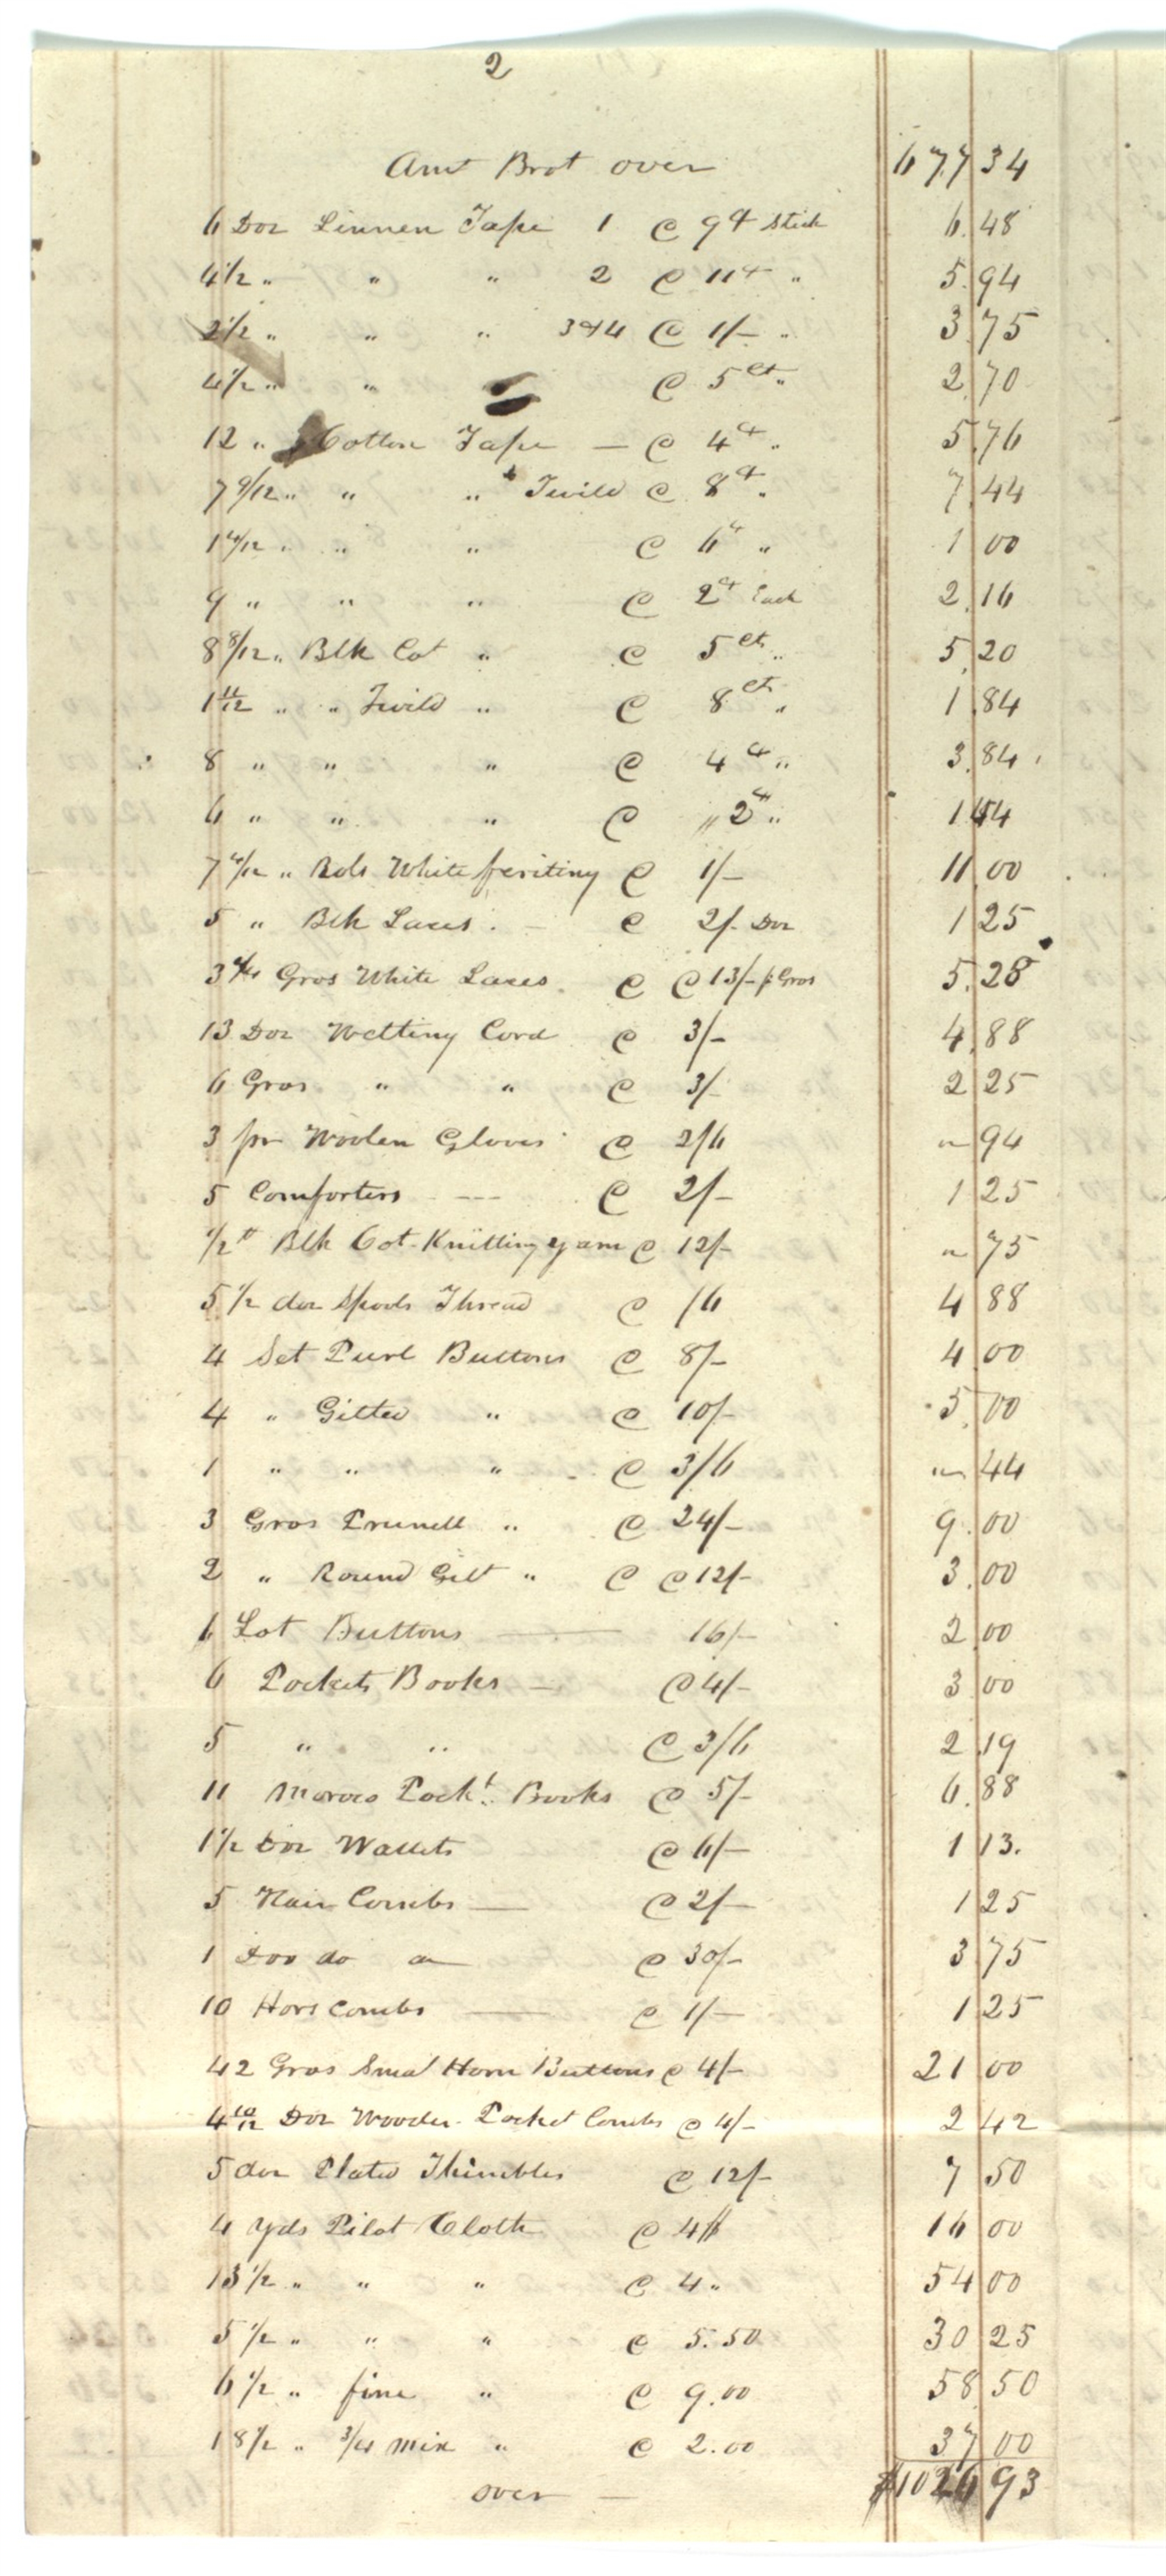 2
Amt Brot over 677 34
6 Doz Linnen Tape 1 @ 9 ct Stick 6.48
4 1/2 " " " 2 @ 11 ct " 5.94
2 1/2 " " " 3 & 4 @ 1/- " 3.75
4 1/2 " " @ 5 ct " 2.70
12 " Cotton Tape — @ 4 ct " 5.76
7 9/12 " " " Twild @ 8 ct " 7.44
1 4/12 " " " @ 6 ct " 1 00
9 " " " @ 2 ct Each 2.16
8 8/12 " Blk Cot " @ 5 ct " 5.20
1 11/12 " " Twild " @ 8 ct " 1.84
8 " " " @ 4 ct " 3.84
6 " " " @ " 2 ct " 1 44
7 4/12 " Bols White ferriting @ 1/- 11.00
5 " Blk Laces . - @ 2/- Doz 1 25
3 Gros White Laces @ @ 13/- p Gros 5.28
13 Doz Wetting Cord @ 3/- 4.88
6 Gros " " @ 3/- 2 25
3 pr Woolen Gloves @ 2/6 " 94
5 Comforters --- @ 2/- 1 25
1/2 # Blk Cot. Knitting yarn @ 12/- " 75
5 1/2 doz Spools Thread @ /6 4 88
4 Set Purl Buttons @ 8/- 4 00
4 " Gilted " @ 10/- 5.00
1 " " " @ 3/6 " 44
3 Gros Prunell " @ 24/- 9.00
2 " Round Gilt " @ @ 12/- 3.00
1 Lot Buttons — 16/- 2 00
6 Pockets Books — @ 4/- 3 00
5 " " @ 3/6 2.19
11 Moroco Pockt. Books @ 5/- 6.88
1 1/2 Doz Wallets @ 6/- 1 13.
5 Hair Combs — @ 2/- 1 25
1 Doz do @ 30/- 3 75
10 Hors Combs — @ 1/- 1 25
42 Gros Smal Horn Buttons @ 4/- 21 00
4 10/12 Doz Wooden Pocket Combs @ 4/- 2 42
5 doz Plated Thimbles @ 12/- 7 50
4 yds Pilot Cloth @ 4$ 16 00
13 1/2 " " " @ 4 " 54 00
5 1/2 " " " @ 5.50 30 25
6 1/2 " fine " @ 9.00 58 50
18 1/2 " 3/4 mix " @ 2.00 37 00
over — $1026 93